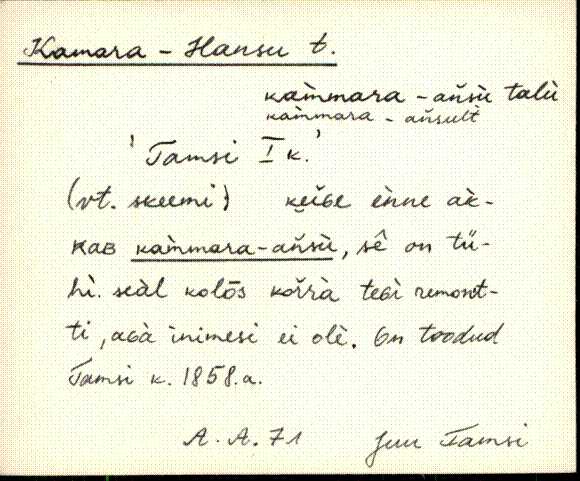 Kamara - Hansu t.
kam̀mara - ańsù talù
kam̀mara - ańsult̀
' Tamsi I k. '
(vt. skeemi) kei̬ɢe ènne ak̀-
kaʙ kam̀mara-ańsù, sê on tü-
hì. seàl kolōs kor̆rà teɢì remont-
ti, aɢà inimesi ei olè. On toodud
Tamsi k. 1858.a.
A. A. 71 Juu Tamsi